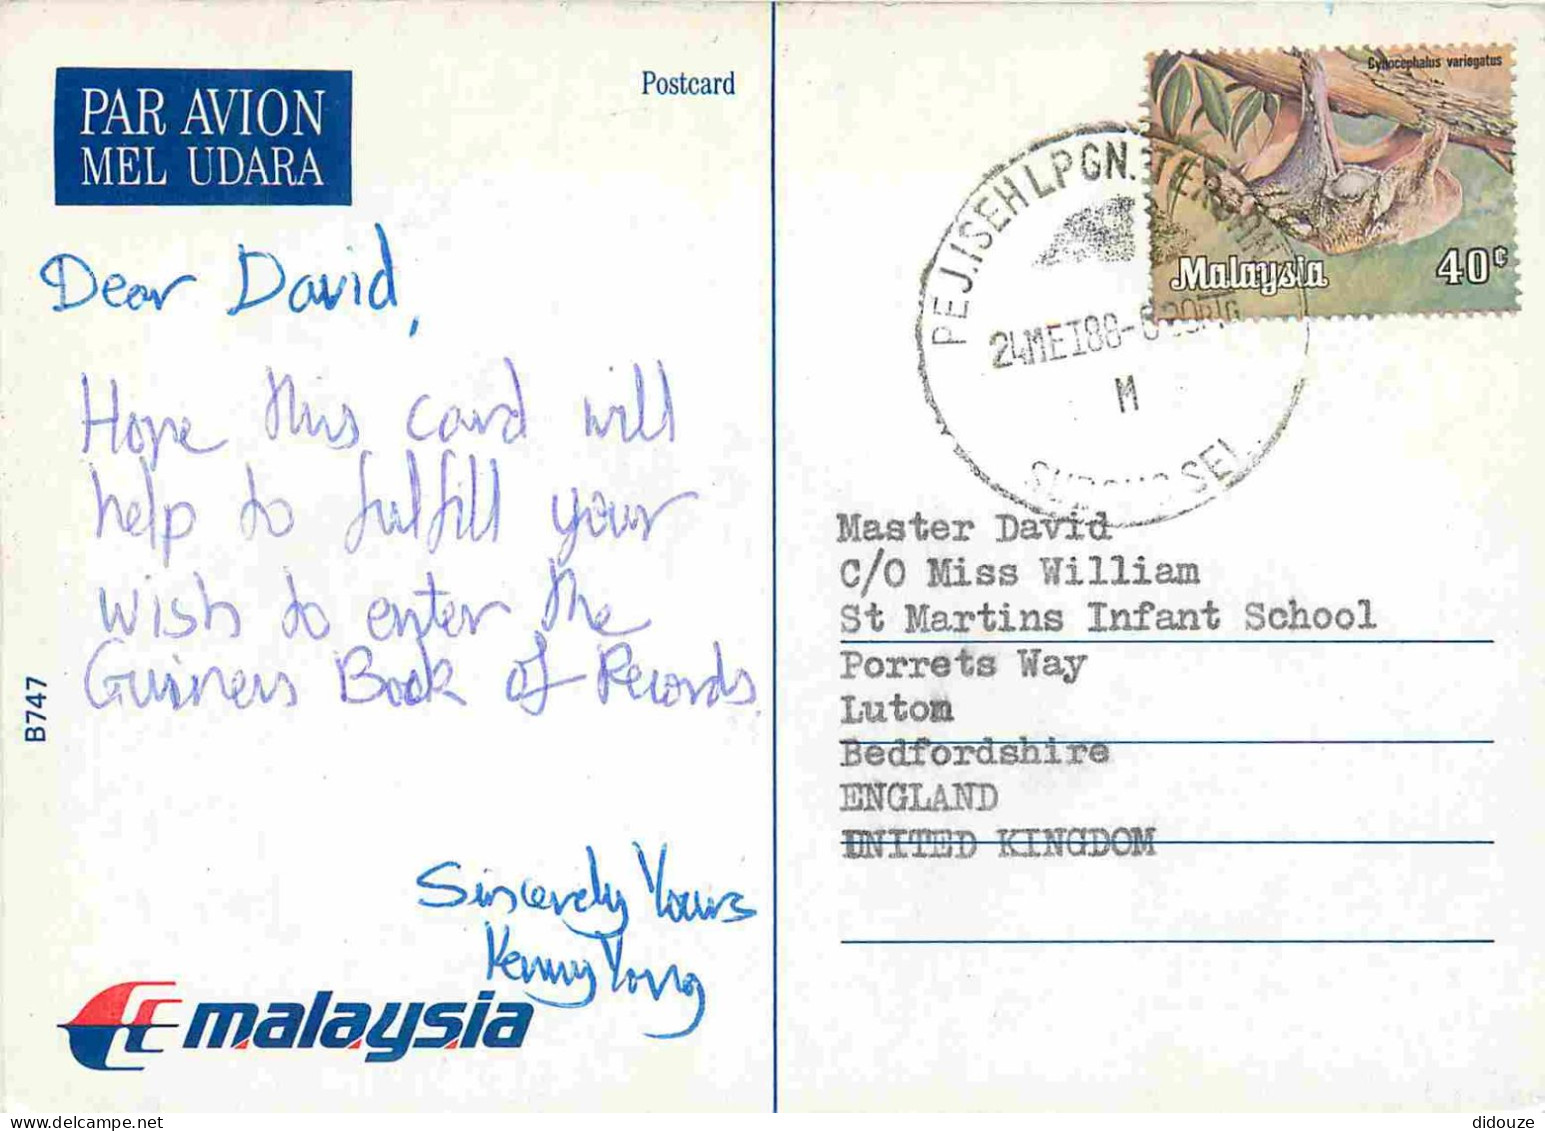 PAR AVION
MEL UDARA
Postcard
Dear David,
Hope this card will
help to fulfill your
wish to enter the
Guinness Book of Records
Sincerely Yours
Kenny Yong
B747
malaysia
Cynocephalus variegatus
Malaysia 40¢
PEJ.ISEHLPGN.
24MEI88-6
M
SEL.
Master David
C/O Miss William
St Martins Infant School
Porrets Way
Luton
Bedfordshire
ENGLAND
UNITED KINGDOM
didouze